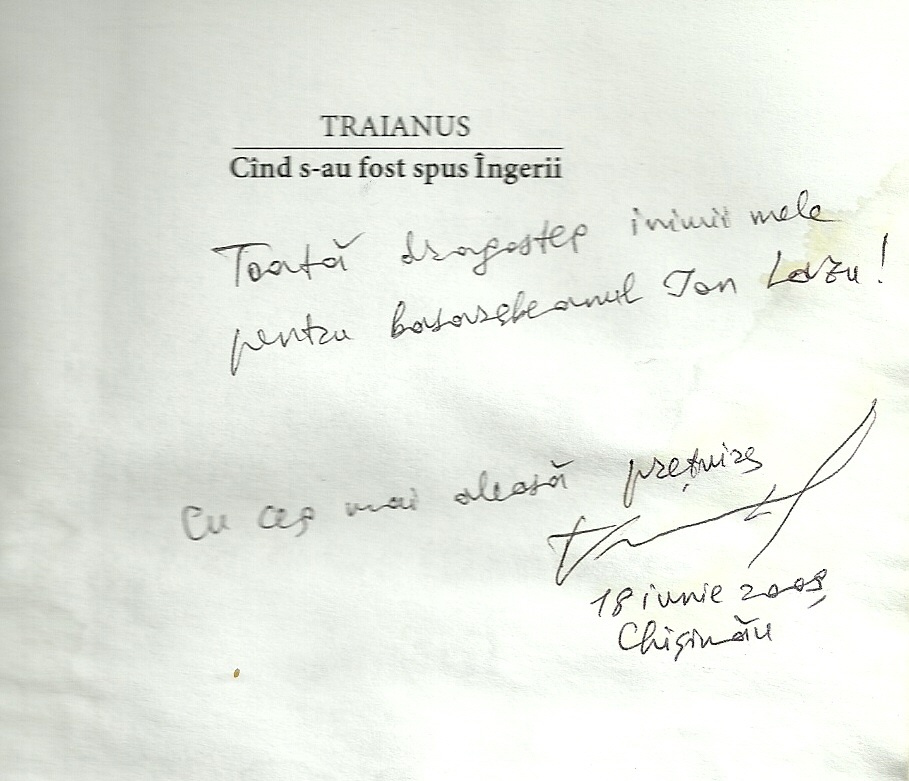 TRAIANUS
Cînd s-au fost spus Îngerii
Toată dragostea inimii mele
pentru basarabeanul Ion Lazu!
Cu cea mai aleasă prețuire
18 iunie 2009,
Chișinău